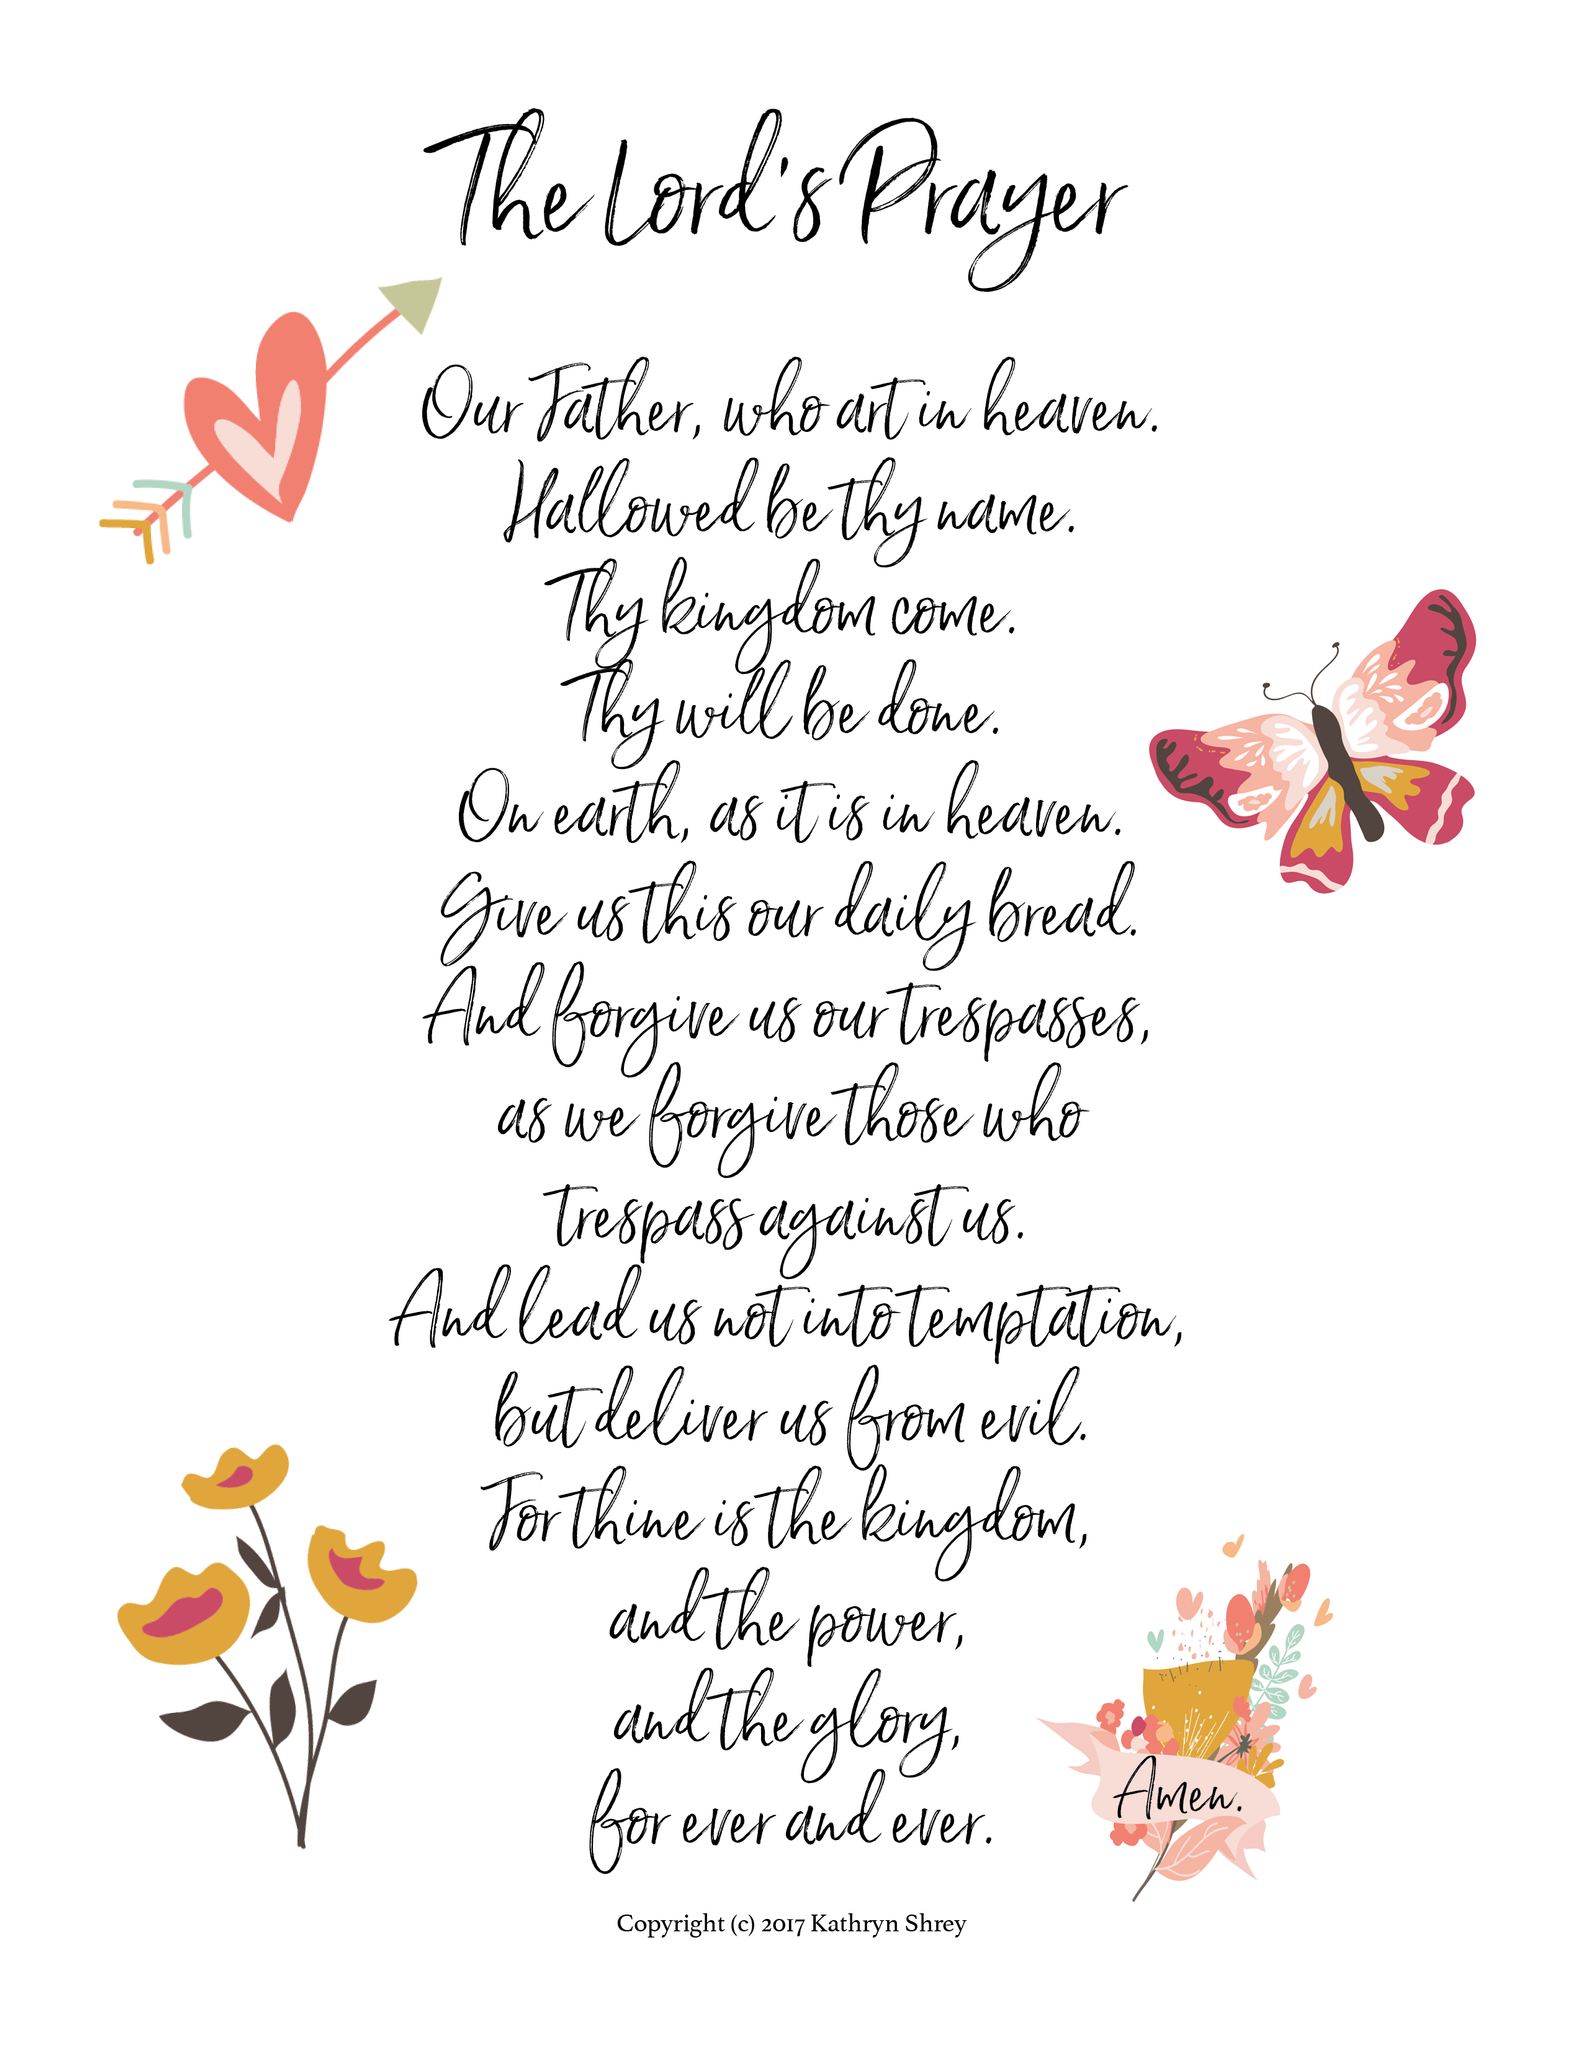 The Lord's Prayer
Our Father, who art in heaven.
Hallowed be thy name.
Thy kingdom come.
Thy will be done.
On earth, as it is in heaven.
Give us this our daily bread.
And forgive us our trespasses,
as we forgive those who
trespass against us.
And lead us not into temptation,
but deliver us from evil.
For thine is the kingdom,
and the power,
and the glory,
for ever and ever.
Amen.
Copyright (c) 2017 Kathryn Shrey